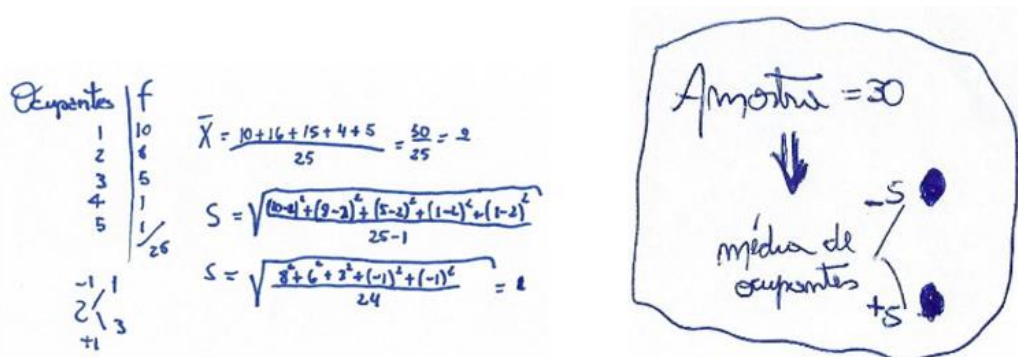 Ocupantes | f
1 | 10
2 | 8
3 | 5
4 | 1
5 | 1
25
-1 / 1
2 \ 3
+1
X̄ = (10+16+15+4+5)/25 = 50/25 = 2
S = √((10-2)²+(8-2)²+(5-2)²+(1-2)²+(1-2)²)/(25-1)
S = √(8²+6²+3²+(-1)²+(-1)²)/24 =
Amostra = 30
-S
média de
ocupantes
+S